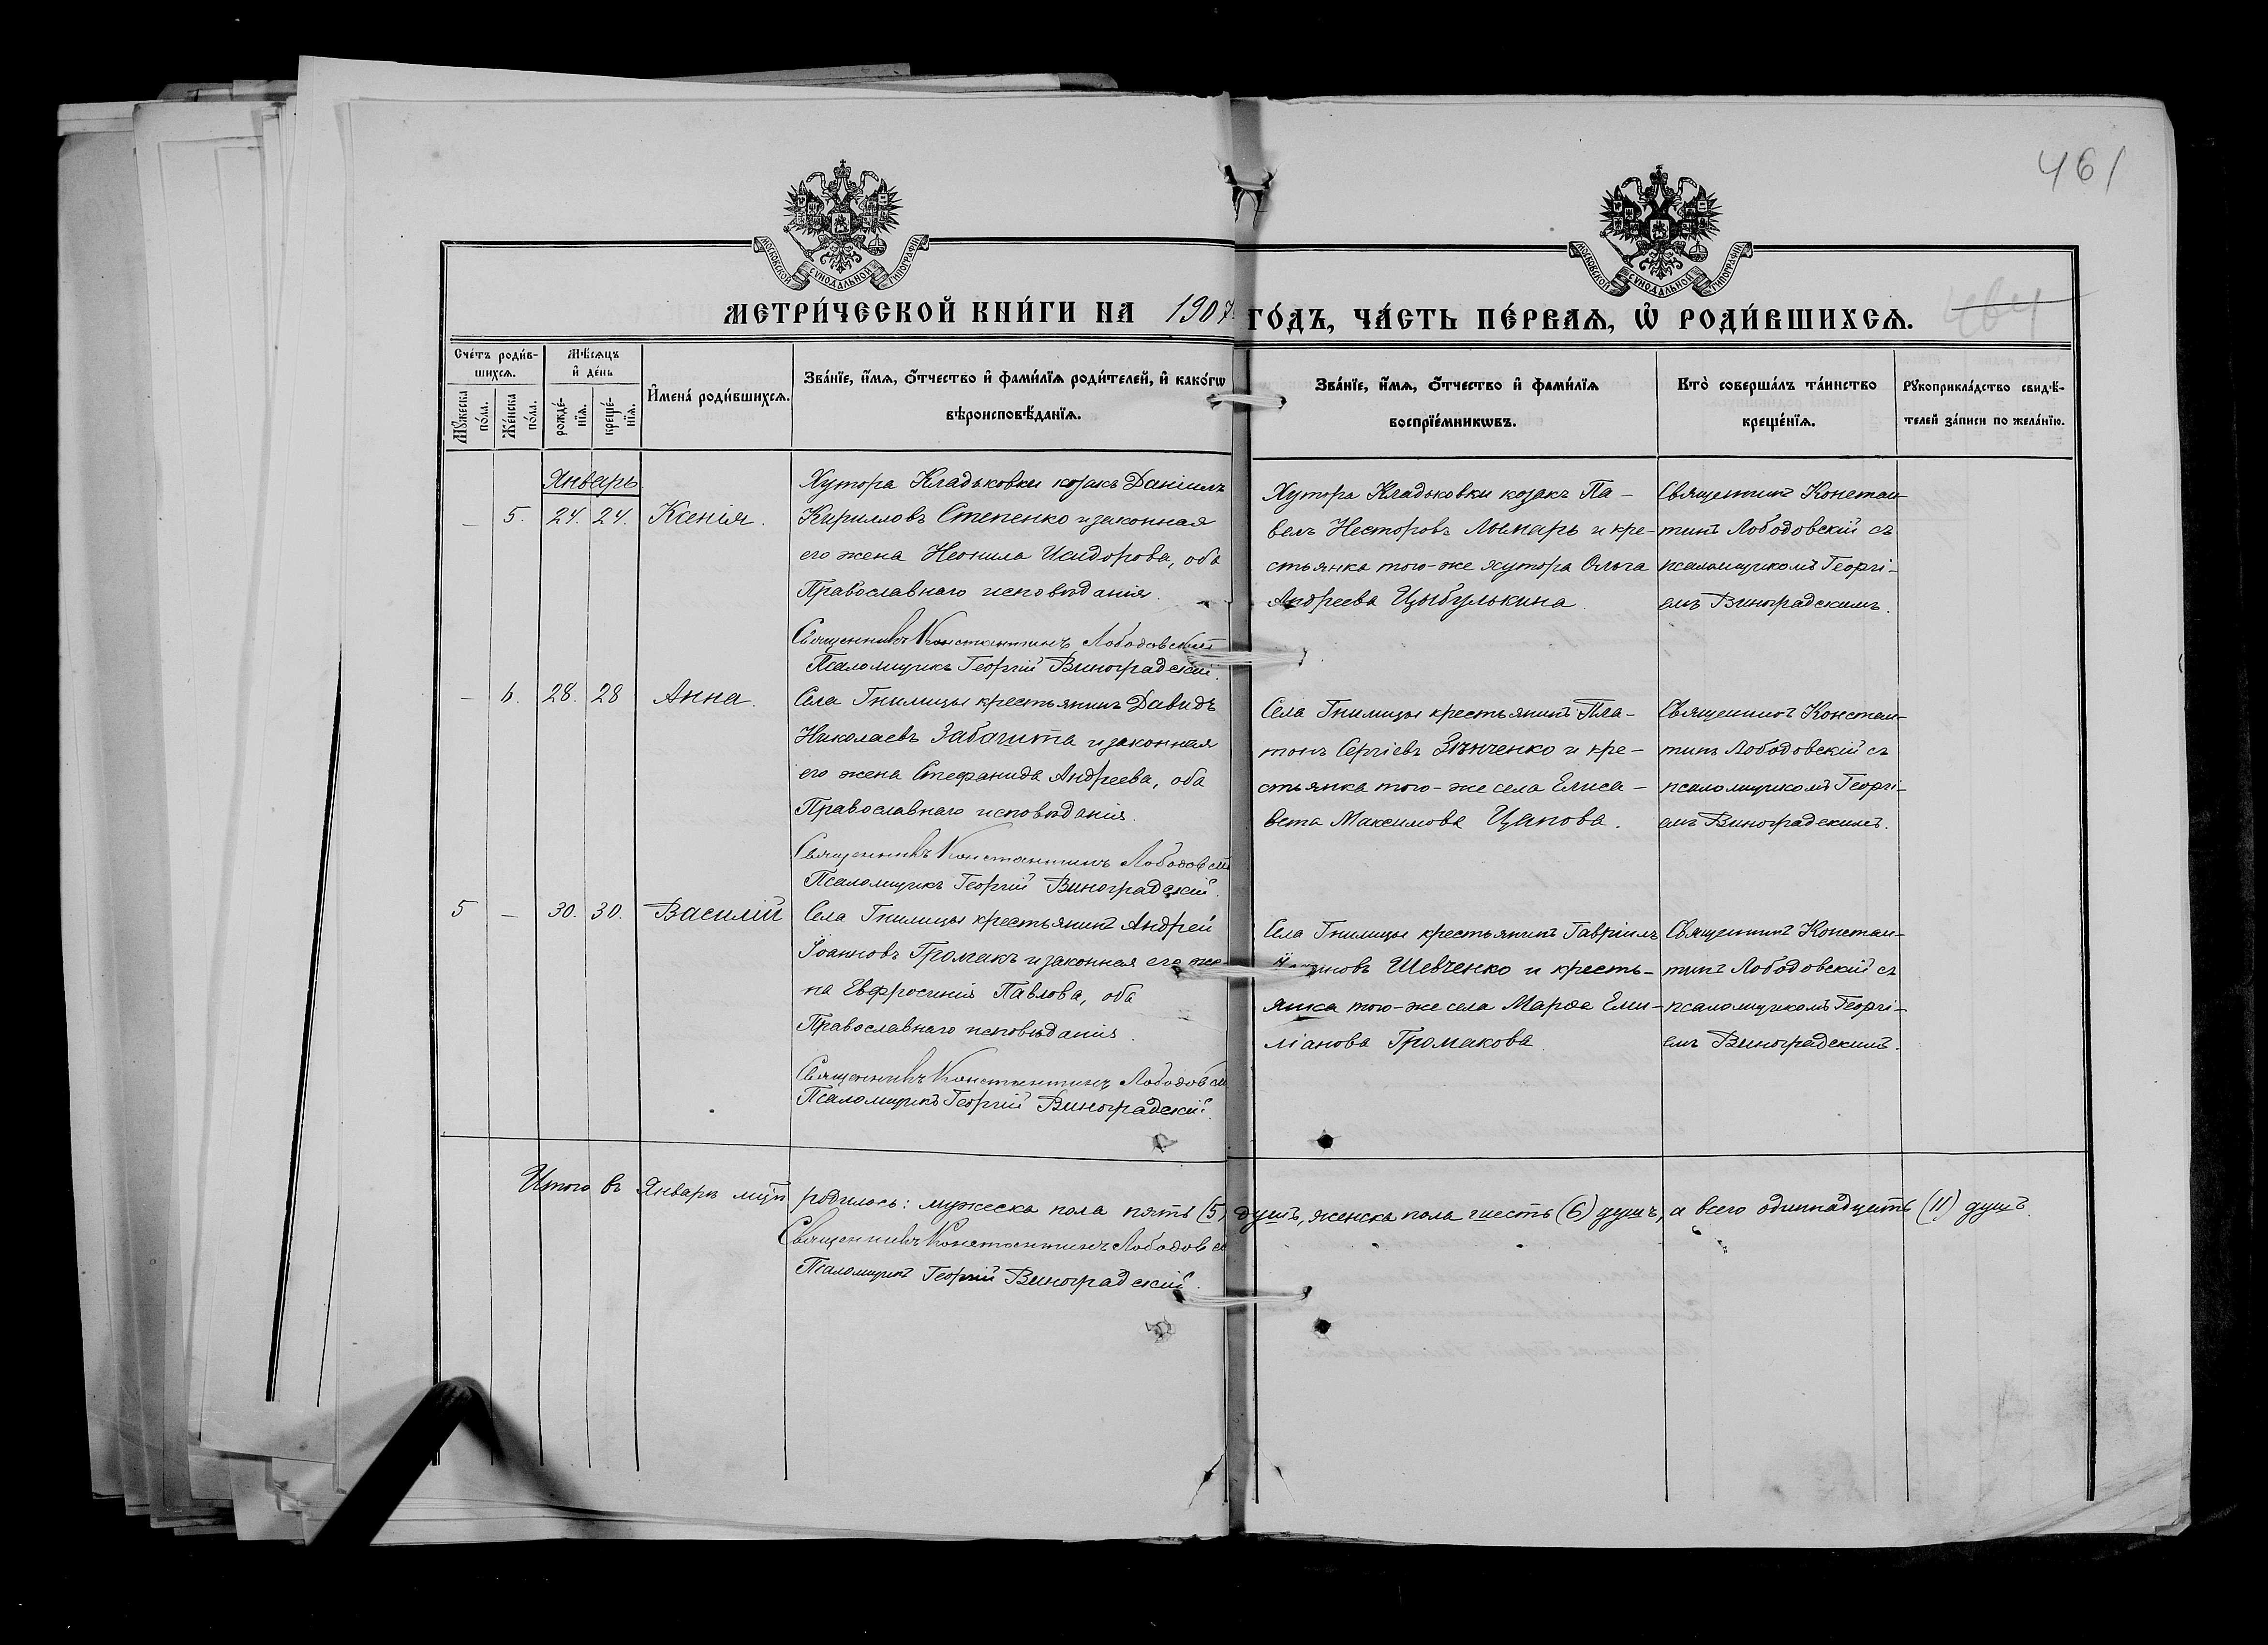 461
МОСКОВСКОЙ СѴНОДАЛЬНОЙ ТИПОГРАФІИ
МОСКОВСКОЙ СѴНОДАЛЬНОЙ ТИПОГРАФІИ
МЕТРИ́ЧЕСКОЙ КНИ́ГИ НА 1907 ГО́ДЪ, ЧА́СТЬ ПЕ́РВАѦ, Ѡ҆ РОДИ́ВШИХСѦ.
464
Сче́тъ роди́в-
шихсѧ.
Мѣ́сѧцъ
и҆ де́нь
Мꙋ́жеска
по́ла.
Же́нска
по́ла.
рожде́-
нїѧ.
креще́-
нїѧ.
И҆мена̀ роди́вшихсѧ.
Зва́нїе, и҆́мѧ, ѻ҆́тчество и҆ фами́лїѧ роди́телей, и҆ како́гѡ
вѣроисповѣ́данїѧ.
Зва́нїе, и҆́мѧ, ѻ҆́тчество и҆ фами́лїѧ
воспрїе́мникѡвъ.
Кто̀ соверша́лъ та́инство
креще́нїѧ.
Рꙋкоприкла́дство свидѣ́-
телей за́писи по жела́нїю.
Январь
— 5. 24. 24. Ксенія.
Хутора Кладьковки козакъ Даніилъ
Кирилловъ Степенко и законная
его жена Неонила Исидорова, оба
Православнаго исповѣданія.
Священникъ Константинъ Лободовскій
Псаломщикъ Георгій Виноградскій.
Хутора Кладьковки козакъ Па-
велъ Несторовъ Лымарь и кре-
стьянка того-же хутора Ольга
Андреева Цыбулькина.
Священникъ Констан-
тинъ Лободовскій съ
псаломщикомъ Георгі-
емъ Виноградскимъ.
— 6. 28. 28 Анна.
Села Гнилицы крестьянинъ Давидъ
Николаевъ Забашта и законная
его жена Стефанида Андреева, оба
Православнаго исповѣданія.
Священникъ Константинъ Лободовскій
Псаломщикъ Георгій Виноградскій.
Села Гнилицы крестьянинъ Пла-
тонъ Сергіевъ Зѣнченко и кре-
стьянка того-же села Елиса-
вета Максимова Цапова.
Священникъ Констан-
тинъ Лободовскій съ
псаломщикомъ Георгі-
емъ Виноградскимъ.
5 — 30. 30. Василій
Села Гнилицы крестьянинъ Андрей
Іоанновъ Громакъ и законная его же-
на Евфросинія Павлова, оба
Православнаго исповѣданія.
Священникъ Константинъ Лободовскій
Псаломщикъ Георгій Виноградскій.
Села Гнилицы крестьянинъ Гавріилъ
Шевченко и кресть-
янка того-же села Марѳа Еми-
ліанова Громакова.
Священникъ Констан-
тинъ Лободовскій съ
псаломщикомъ Георгі-
емъ Виноградскимъ.
Итого въ Январѣ мцѣ родилось: мужеска пола пять (5) душъ, женска пола шесть (6) душъ, а всего одиннадцать (11) душъ.
Священникъ Константинъ Лободовскій
Псаломщикъ Георгій Виноградскій.